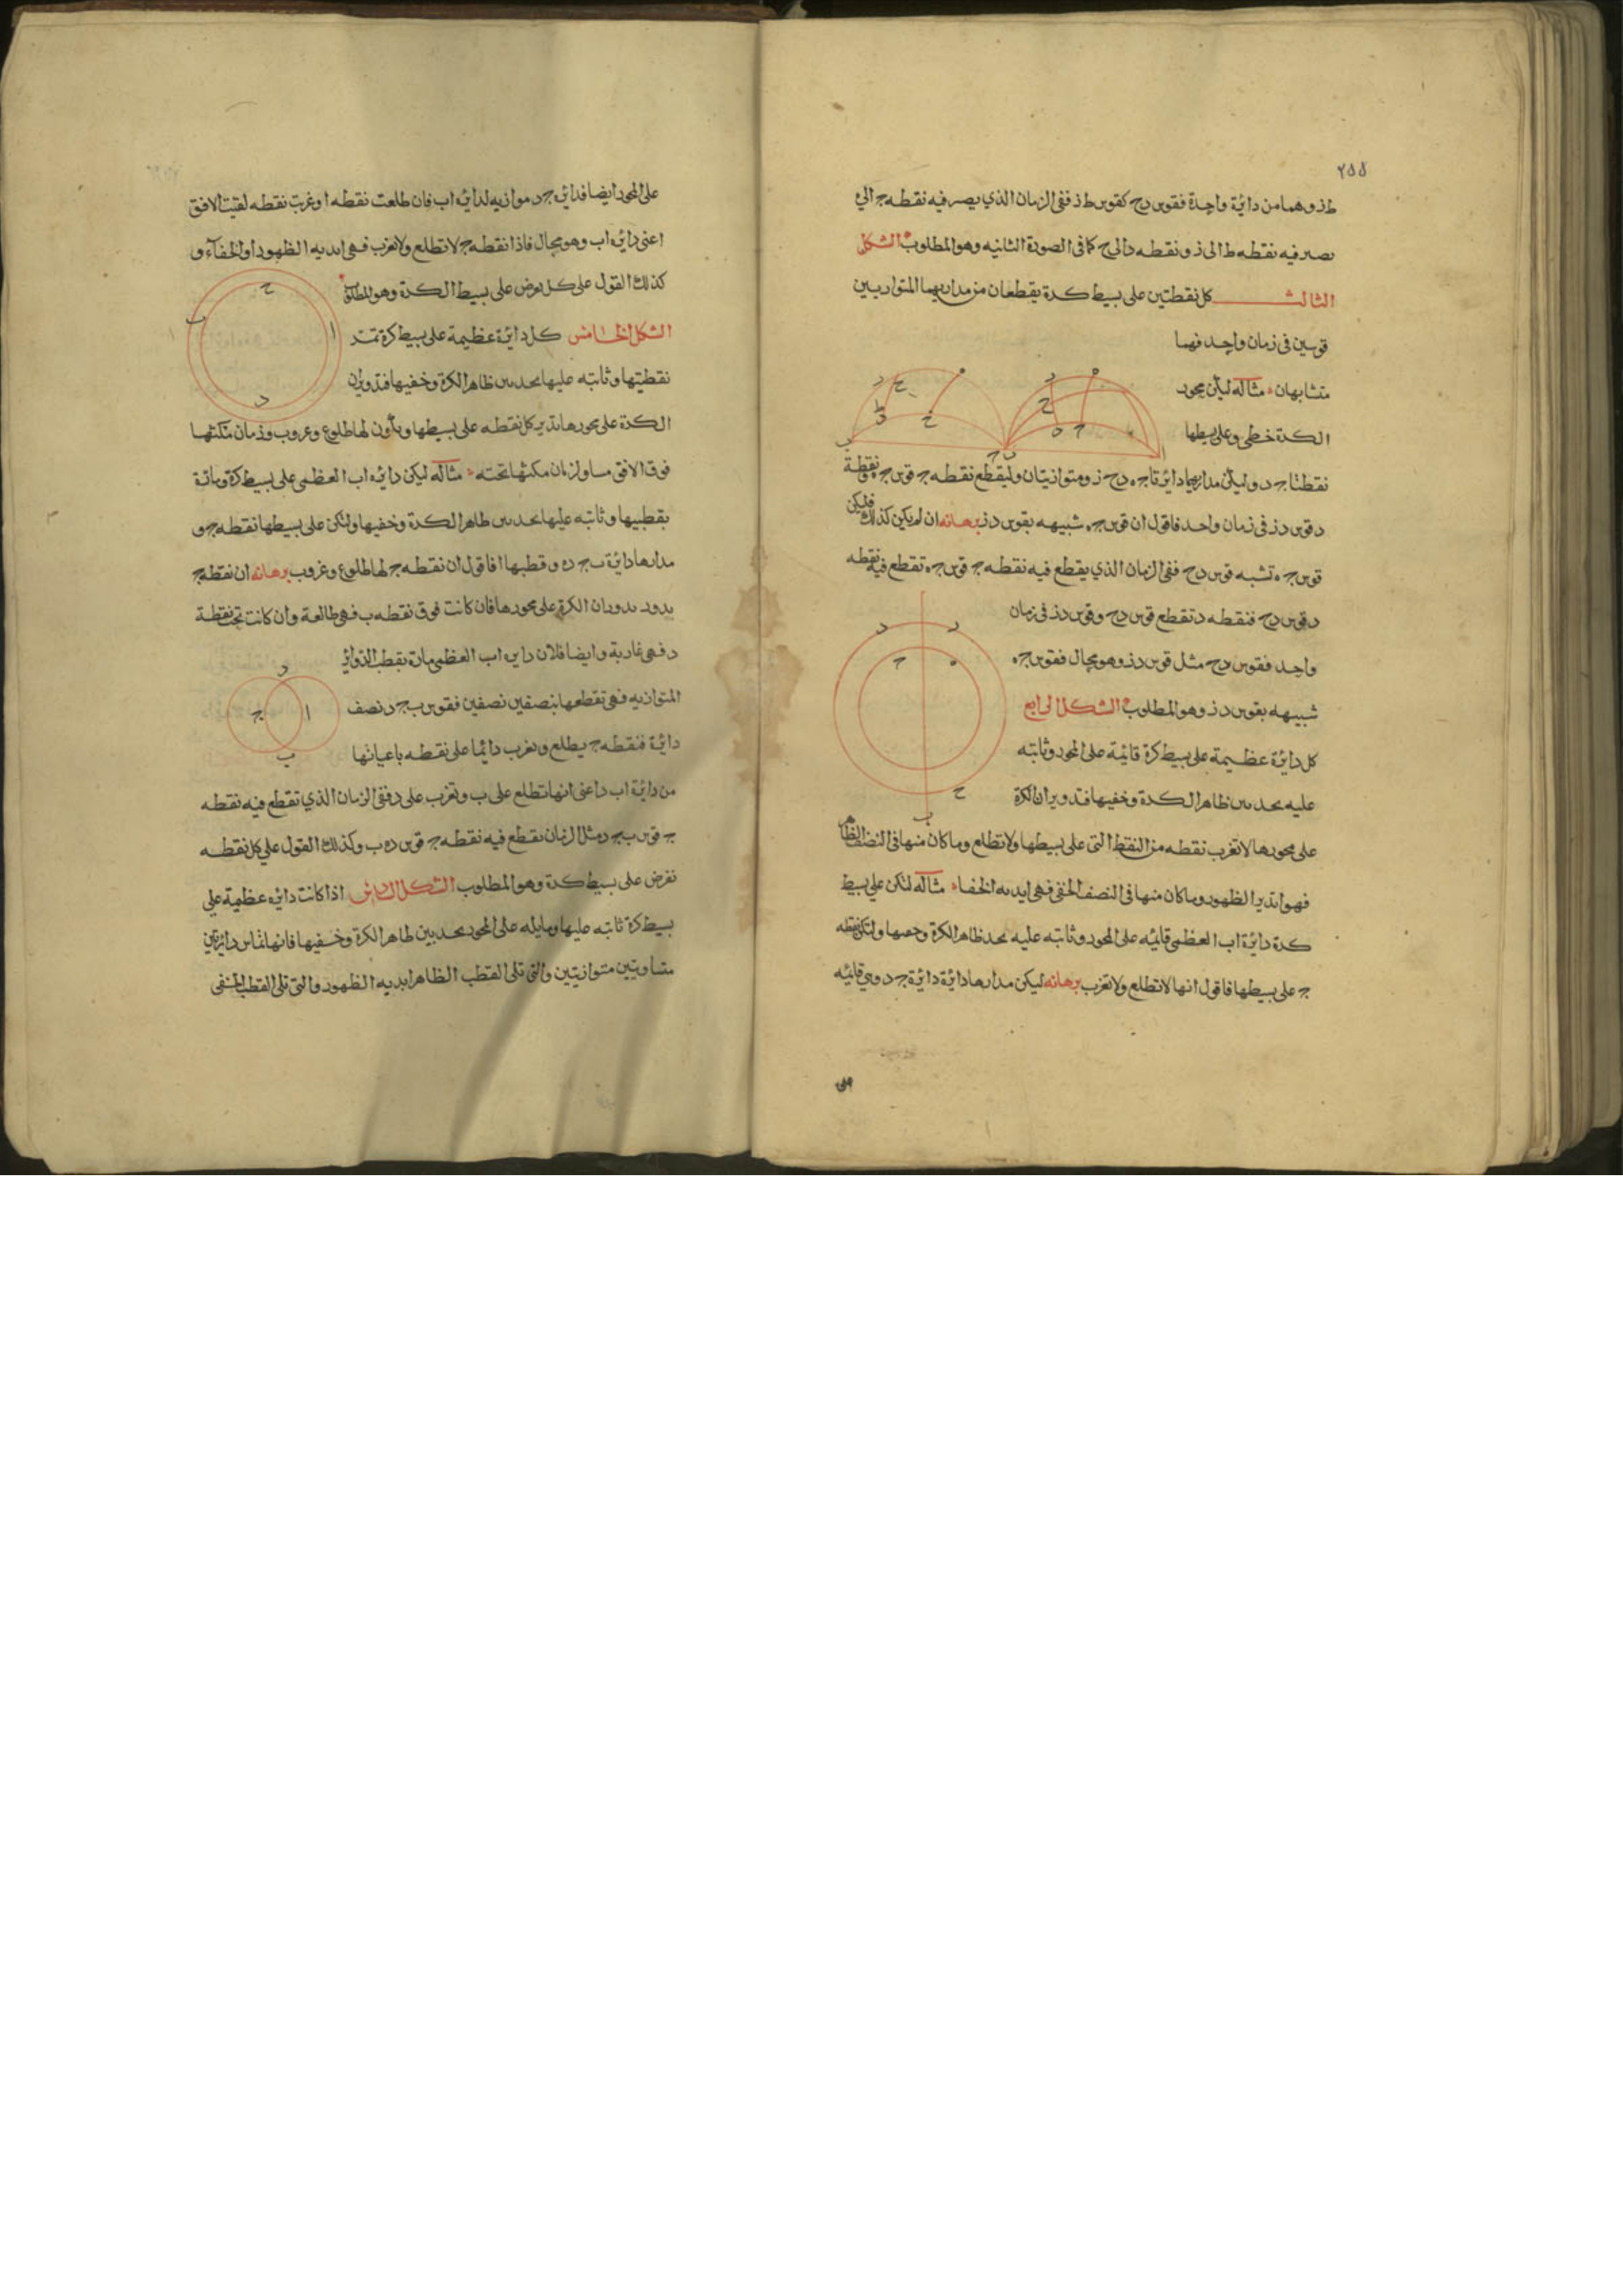 ٢٥٥
طز وهما من دائرة واحدة فقوس دح كقوس طز ففى الزمان الذي يصير فيه نقطه ج الى
يصير فيه نقطه ط الى ز ونقطه د الى ح كما فى الصورة الثانيه وهو المطلوب الشكل
الثالث كل نقطتين على بسيط كرة يقطعان من مداريهما المتوازيين
قوسين فى زمان واحد فهما
متشابهان مثاله ليكن محور
الكرة خط ا وعلى بسيطها
نقطتا ج د وليكن مداريهما دائرتا ج ه دح ز ومتوازيتان وليقطع نقطه ج قوس ج ه ونقطة
د قوس دز فى زمان واحد فاقول ان قوس ج ه شبيهه بقوس دز برهانه ان لم يكن كذلك فليكن
قوس ج ه تشبه قوس دح ففى الزمان الذي يقطع فيه نقطه ج قوس ج ه تقطع فيه نقطه
د قوس دح فنقطه د تقطع قوس دح وقوس دز فى زمان
واحد فقوس دح مثل قوس دز وهو محال فقوس ج ه
شبيهه بقوس دز وهو المطلوب الشكل الرابع
كل دائرة عظيمة على بسيط كرة قائمة على المحور وثابته
عليه يحد بين ظاهر الكرة وخفيها فتدوير ان الكرة
على محورها لا تغرب نقطه من النقط التى على بسيطها ولا تطلع وما كان منها فى النصف الظاهر
فهو ابدى الظهور وما كان منها فى النصف الخفى فهى ابديه الخفاء مثاله لتكن على بسيط
كرة دائرة اب العظمى قائمه على المحور وثابته عليه يحد ظاهر الكرة وخفيها ولتكن نقطه
ج على بسيطها فاقول انها لا تطلع ولا تغرب برهانه ليكن مدارها دائرة دائرة ج د وهي قائمه
على
على المحور ايضا فدائرة ج د موازيه لدائرة اب فان طلعت نقطه ا وغربت نقطه لقيت الافق
اعنى دائرة اب وهو محال فاذا نقطه ج لا تطلع ولا تغرب فهى ابديه الظهور او الخفاء و
كذلك القول على كل نقطه تفرض على بسيط الكرة وهو المطلوب
الشكل الخامس كل دائرة عظيمة على بسيط كرة تمر
نقطتيها وثابته عليها يحد بين ظاهر الكرة وخفيها فتدويران
الكرة على محورها تدير كل نقطه على بسيطها ويكون لها طلوع وغروب وزمان مكثها
فوق الافق مساو لزمان مكثها تحته مثاله ليكن دائرة اب العظمى على بسيط كرة ومارة
بقطبيها وثابته عليها يحد بين ظاهر الكرة وخفيها ولتكن على بسيطها نقطه ج و
مدارها دائرة ب ج ده وقطبها ا فاقول ان نقطه ج لها طلوع وغروب برهانه ان نقطه ج
يدور بدوران الكرة على محورها فان كانت فوق نقطه ب فهى طالعة وان كانت تحت نقطة
د فهى غاربة وايضا فلان دايره اب العظمى مارة بقطب الدوائر
المتوازيه فهى تقطعها بنصفين نصفين فقوس ب ج د نصف
دائرة فنقطه ج يطلع وتغرب دائما على نقطه باعيانها
من دائرة اب د اعنى انها تطلع على ب وتغرب على د ففى الزمان الذي تقطع فيه نقطه
ج قوس ب ج د مثل الزمان تقطع فيه نقطه ج قوس ده ب وكذلك القول على كل نقطه
تفرض على بسيط كرة وهو المطلوب الشكل السادس اذا كانت دائره عظيمة على
بسيط كرة ثابته عليها ومايله على المحور يحد بين ظاهر الكرة وخفيها فانها تماس دائرتين
متساويتين متوازيتين والتى تلى القطب الظاهر ابديه الظهور والتى تلى القطب الخفى